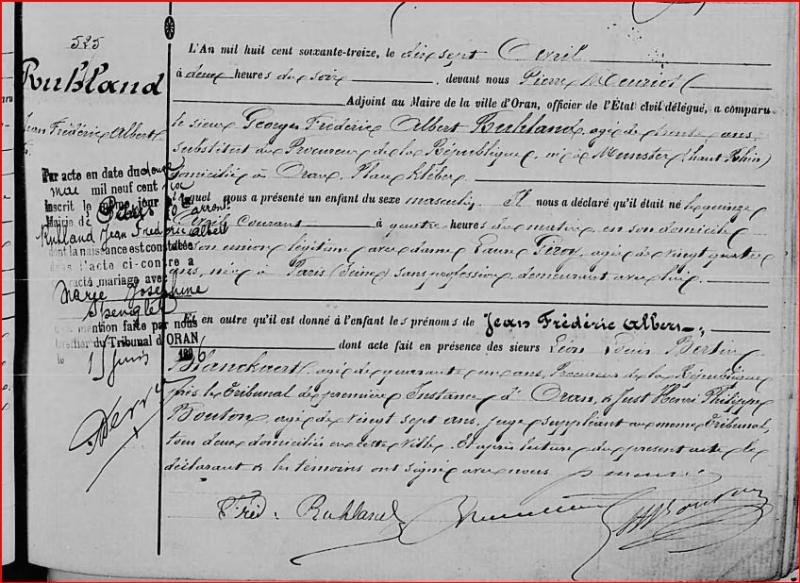 525
Ruhland
Jean Frédéric Albert
Par acte en date du douze
mai mil neuf cent six
inscrit le même jour
Mairie de Paris 10e Arrondt
Ruhland Jean Frédéric Albert
dont la naissance est constatée
dans l'acte ci-contre a
contracté mariage avec
Marie Joséphine
Spengler
mention faite par nous
Greffier du Tribunal d'ORAN
le 15 juin 1906
L'An mil huit cent soixante-treize, le dix sept Avril
à deux heures du soir, devant nous Pierre
Adjoint au Maire de la ville d'Oran, officier de l'État civil délégué, a comparu
le sieur Georges Frédéric Albert Ruhland, agé de trente ans
substitut du Procureur de la République, né à Munster (haut Rhin)
domicilié à Oran, Place Kléber
lequel nous a présenté un enfant du sexe masculin. Il nous a déclaré qu'il était né le quinze
Avril Courant à quatre heures du matin en son domicile
de son union légitime avec dame Laure agée de vingt quatre
ans, née à Paris (Seine) sans profession, demeurant avec lui.
Et en outre qu'il est donné à l'enfant les prénoms de Jean Frédéric Albert,
dont acte fait en présence des sieurs Léon Louis Bertin
Blanckaert, agé de quarante un ans, Procureur de la République
près le Tribunal de première Instance d'Oran, & Just Henri Philippe
Bouton, agé de vingt sept ans, juge suppléant au même Tribunal,
tous deux domiciliés en cette ville. Et après lecture du présent acte le
déclarant & les témoins ont signé avec nous
Fréd. Ruhland